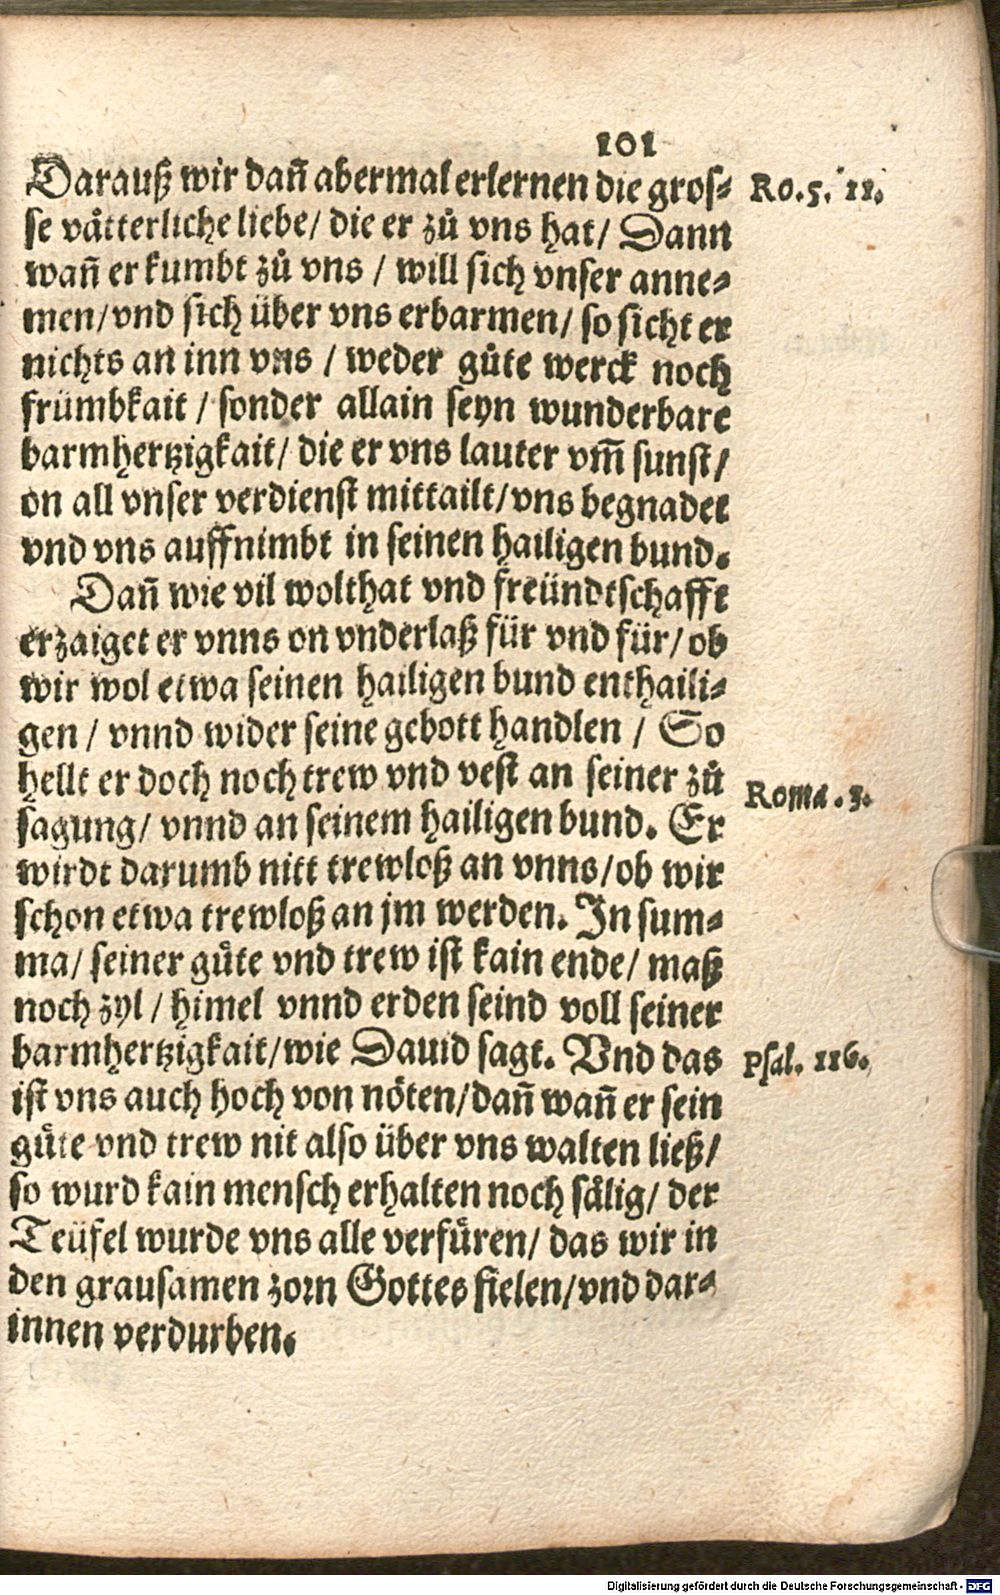 101
Darauß wir dañ abermal erlernen die gros⸗ Ro. 5. 11.
se vaͤtterliche liebe/ die er zů vns hat/ Dann
wañ er kumbt zů vns / will sich vnser anne⸗
men/ vnd sich über vns erbarmen/ so sicht er
nichts an inn vns / weder gůte werck noch
frümbkait / sonder allain seyn wunderbare
barmhertzigkait/ die er vns lauter vm̃ sunst/
on all vnser verdienst mittailt/ vns begnadet
vnd vns auffnimbt in seinen hailigen bund.
Dañ wie vil wolthat vnd freündtschafft
erzaiget er vnns on vnderlaß für vnd für/ ob
wir wol etwa seinen hailigen bund enthaili⸗
gen / vnnd wider seine gebott handlen / So
hellt er doch noch trew vnd vest an seiner zů Roma. 3.
sagung/ vnnd an seinem hailigen bund. Er
wirdt darumb nitt trewloß an vnns/ ob wir
schon etwa trewloß an jm werden. In sum⸗
ma/ seiner gůte vnd trew ist kain ende/ maß
noch zyl / himel vnnd erden seind voll seiner
barmhertzigkait/ wie Dauid sagt. Vnd das Psal. 116.
ist vns auch hoch von nöten/ dañ wañ er sein
gůte vnd trew nit also über vns walten ließ/
so wurd kain mensch erhalten noch saͤlig/ der
Teüfel wurde vns alle verfüren/ das wir in
den grausamen zorn Gottes fielen/ vnd dar⸗
innen verdurben.
Digitalisierung gefördert durch die Deutsche Forschungsgemeinschaft - DFG